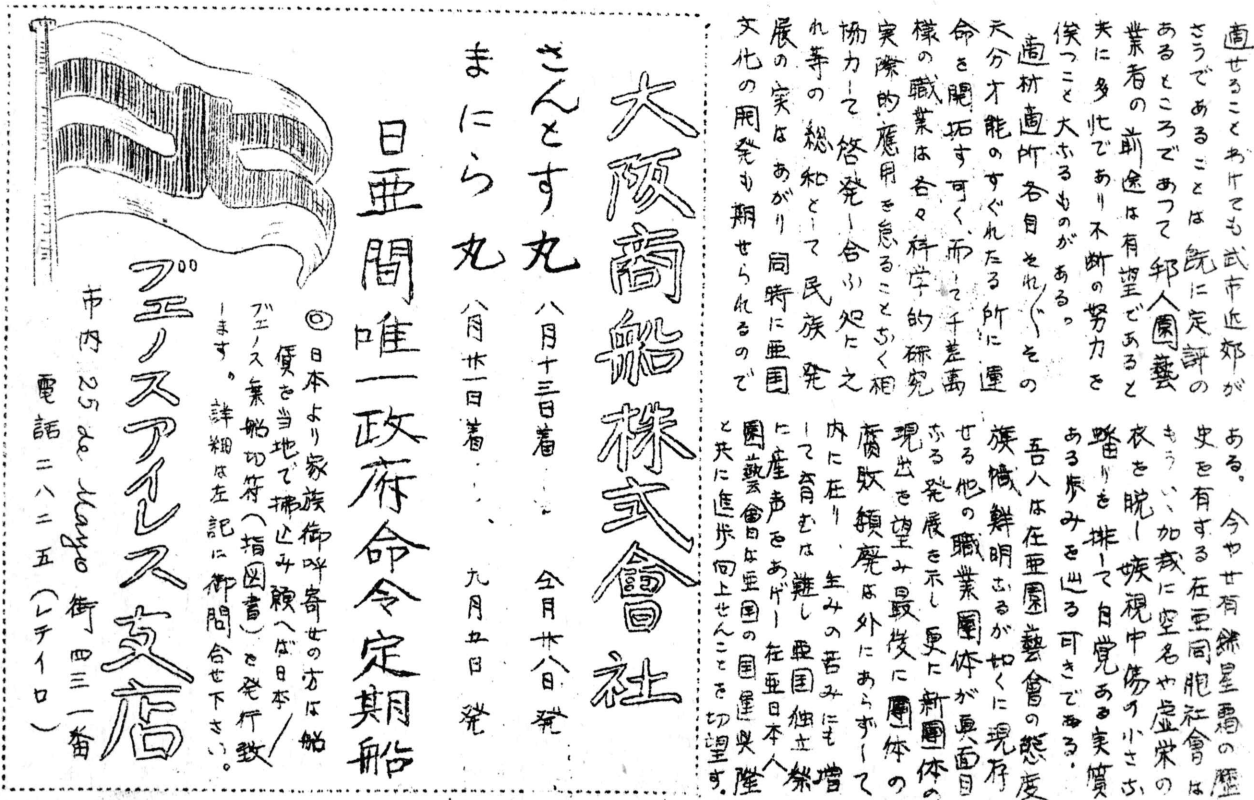 適せることわけても武市近郊が
さうであることは既に定評の
あるところであつて邦人園藝
業者の前途は有望であると
共に多忙であり不断の努力を
俟つこと大なるものがある。
適材適所各自それ〲その
天分才能のすぐれたる所に運
命を開拓す可く、而して千差萬
様の職業は各々科学的研究
実際的應用を怠ることなく相
協力して啓発し合ふ処に之
れ等の総和として民族発
展の実はあがり同時に亜国
文化の開発も期せられるので
ある。今やせ有餘星霜の歴
史を有する在亜同胞社会は
もういゝ加減に空名や虚栄の
衣を脱し嫉視中傷の小さな
蟠りを排して自覚ある実質
ある歩みを辿る可きである。
吾人は在亜園藝會の態度
旗幟鮮明なるが如くに現存
せる他の職業團体が真面目
なる発展を示し更に新團体の
現出を望み最後に團体の
腐敗頽廃は外にあらずして
内に在り、生みの苦みにも増
して育むは難し亜国独立祭
に産声をあげし在亜日本人
園藝會は亜国の国運興隆
と共に進歩向上せんことを切望す。
大阪商船株式會社
さんとす丸 八月十三日着 仝月廿八日発
まにら丸 八月廿一日着 九月五日発
日亜間唯一政府命令定期船
◎日本より家族御呼寄せの方は船
賃を当地で拂込み願へば日本/
ブエノス乗船切符(指図書)を発行致
します。詳細は左記に御問合せ下さい。
ブエノスアイレス支店
市内 25 de Mayo 街 四三一番
電話 二八二五(レテイロ)